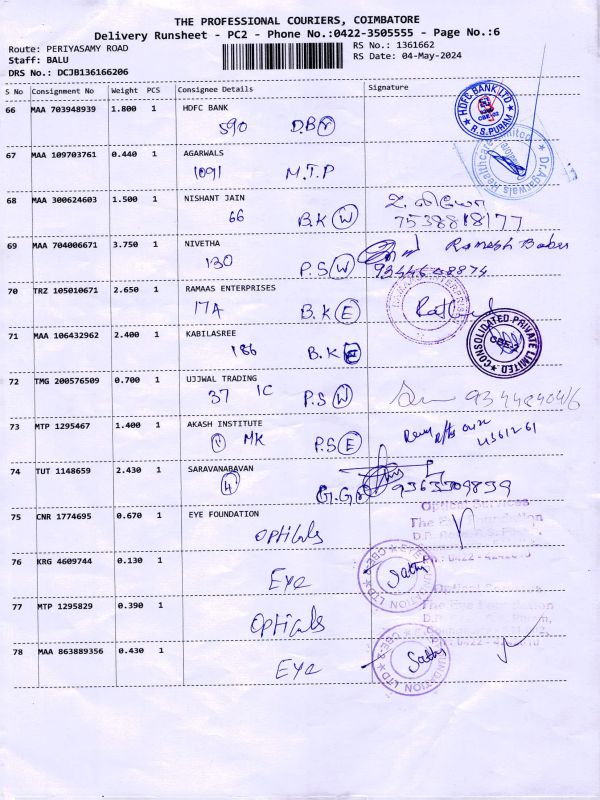 THE PROFESSIONAL COURIERS, COIMBATORE
Delivery Runsheet - PC2 - Phone No.:0422-3505555 - Page No.:6
Route: PERIYASAMY ROAD
RS No.: 1361662
Staff: BALU
RS Date: 04-May-2024
DRS No.: DCJB136166206
S No Consignment No Weight PCS Consignee Details Signature
66 MAA 703948939 1.800 1 HDFC BANK
HDFC BANK LTD
R.S.PURAM
590 D.B Y
67 MAA 109703761 0.440 1 AGARWALS
1091 M.T.P
Dr.Agarwals Healthcare Limited
68 MAA 300624603 1.500 1 NISHANT JAIN
66 B.K W
7538818177
69 MAA 704006671 3.750 1 NIVETHA
Ramesh Babu
130 P.S W
9344608874
70 TRZ 105010671 2.650 1 RAMAAS ENTERPRISES
17A B.K E
71 MAA 106432962 2.400 1 KABILASREE
186 B.K E
CONSOLIDATED PRIVATE LIMITED
CBE-2
72 TMG 200576509 0.700 1 UJJWAL TRADING
37 1C P.S W
73 MTP 1295467 1.400 1 AKASH INSTITUTE
11 MK P.S E
74 TUT 1148659 2.430 1 SARAVANABAVAN
4
9363309839
75 CNR 1774695 0.670 1 EYE FOUNDATION
Opticals
Optical Services
The Eye Foundation
76 KRG 4609744 0.130 1
Eye
Sathy
77 MTP 1295829 0.390 1
Opticals
The Eye Foundation
78 MAA 863889356 0.430 1
Eye
Sathy